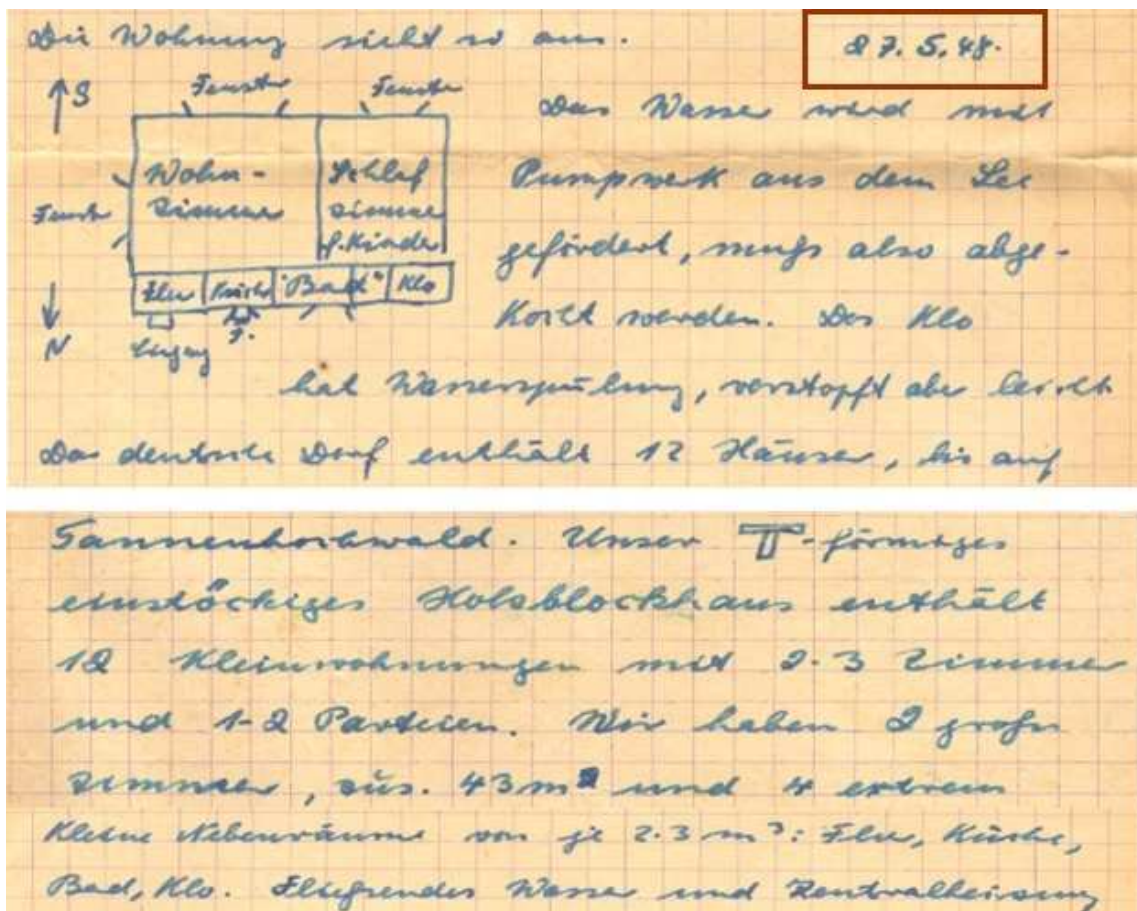 Die Wohnung sieht so aus.
27.5.48.
↑S
Fenster
Fenster
Das Wasser wird mit
Wohn-
zimmer
Schlaf
zimmer
f. Kinder
Fenster
Pumpwerk aus dem See
gefördert, muß also abge-
kocht werden. Das Klo
Flur Küche "Bad" Klo
↓
N
Eingang
F.
hat Wasserspülung, verstopft aber leicht
Das deutsche Dorf enthält 12 Häuser, bis auf
Tannenhochwald. Unser T-förmiges
einstöckiges Holzblockhaus enthält
12 Kleinwohnungen mit 2-3 Zimmer
und 1-2 Parteien. Wir haben 2 große
Zimmer, zus. 43 m² und 4 extrem
kleine Nebenräume von je 2-3 m²: Flur, Küche,
Bad, Klo. Fließendes Wasser und Zentralheizung